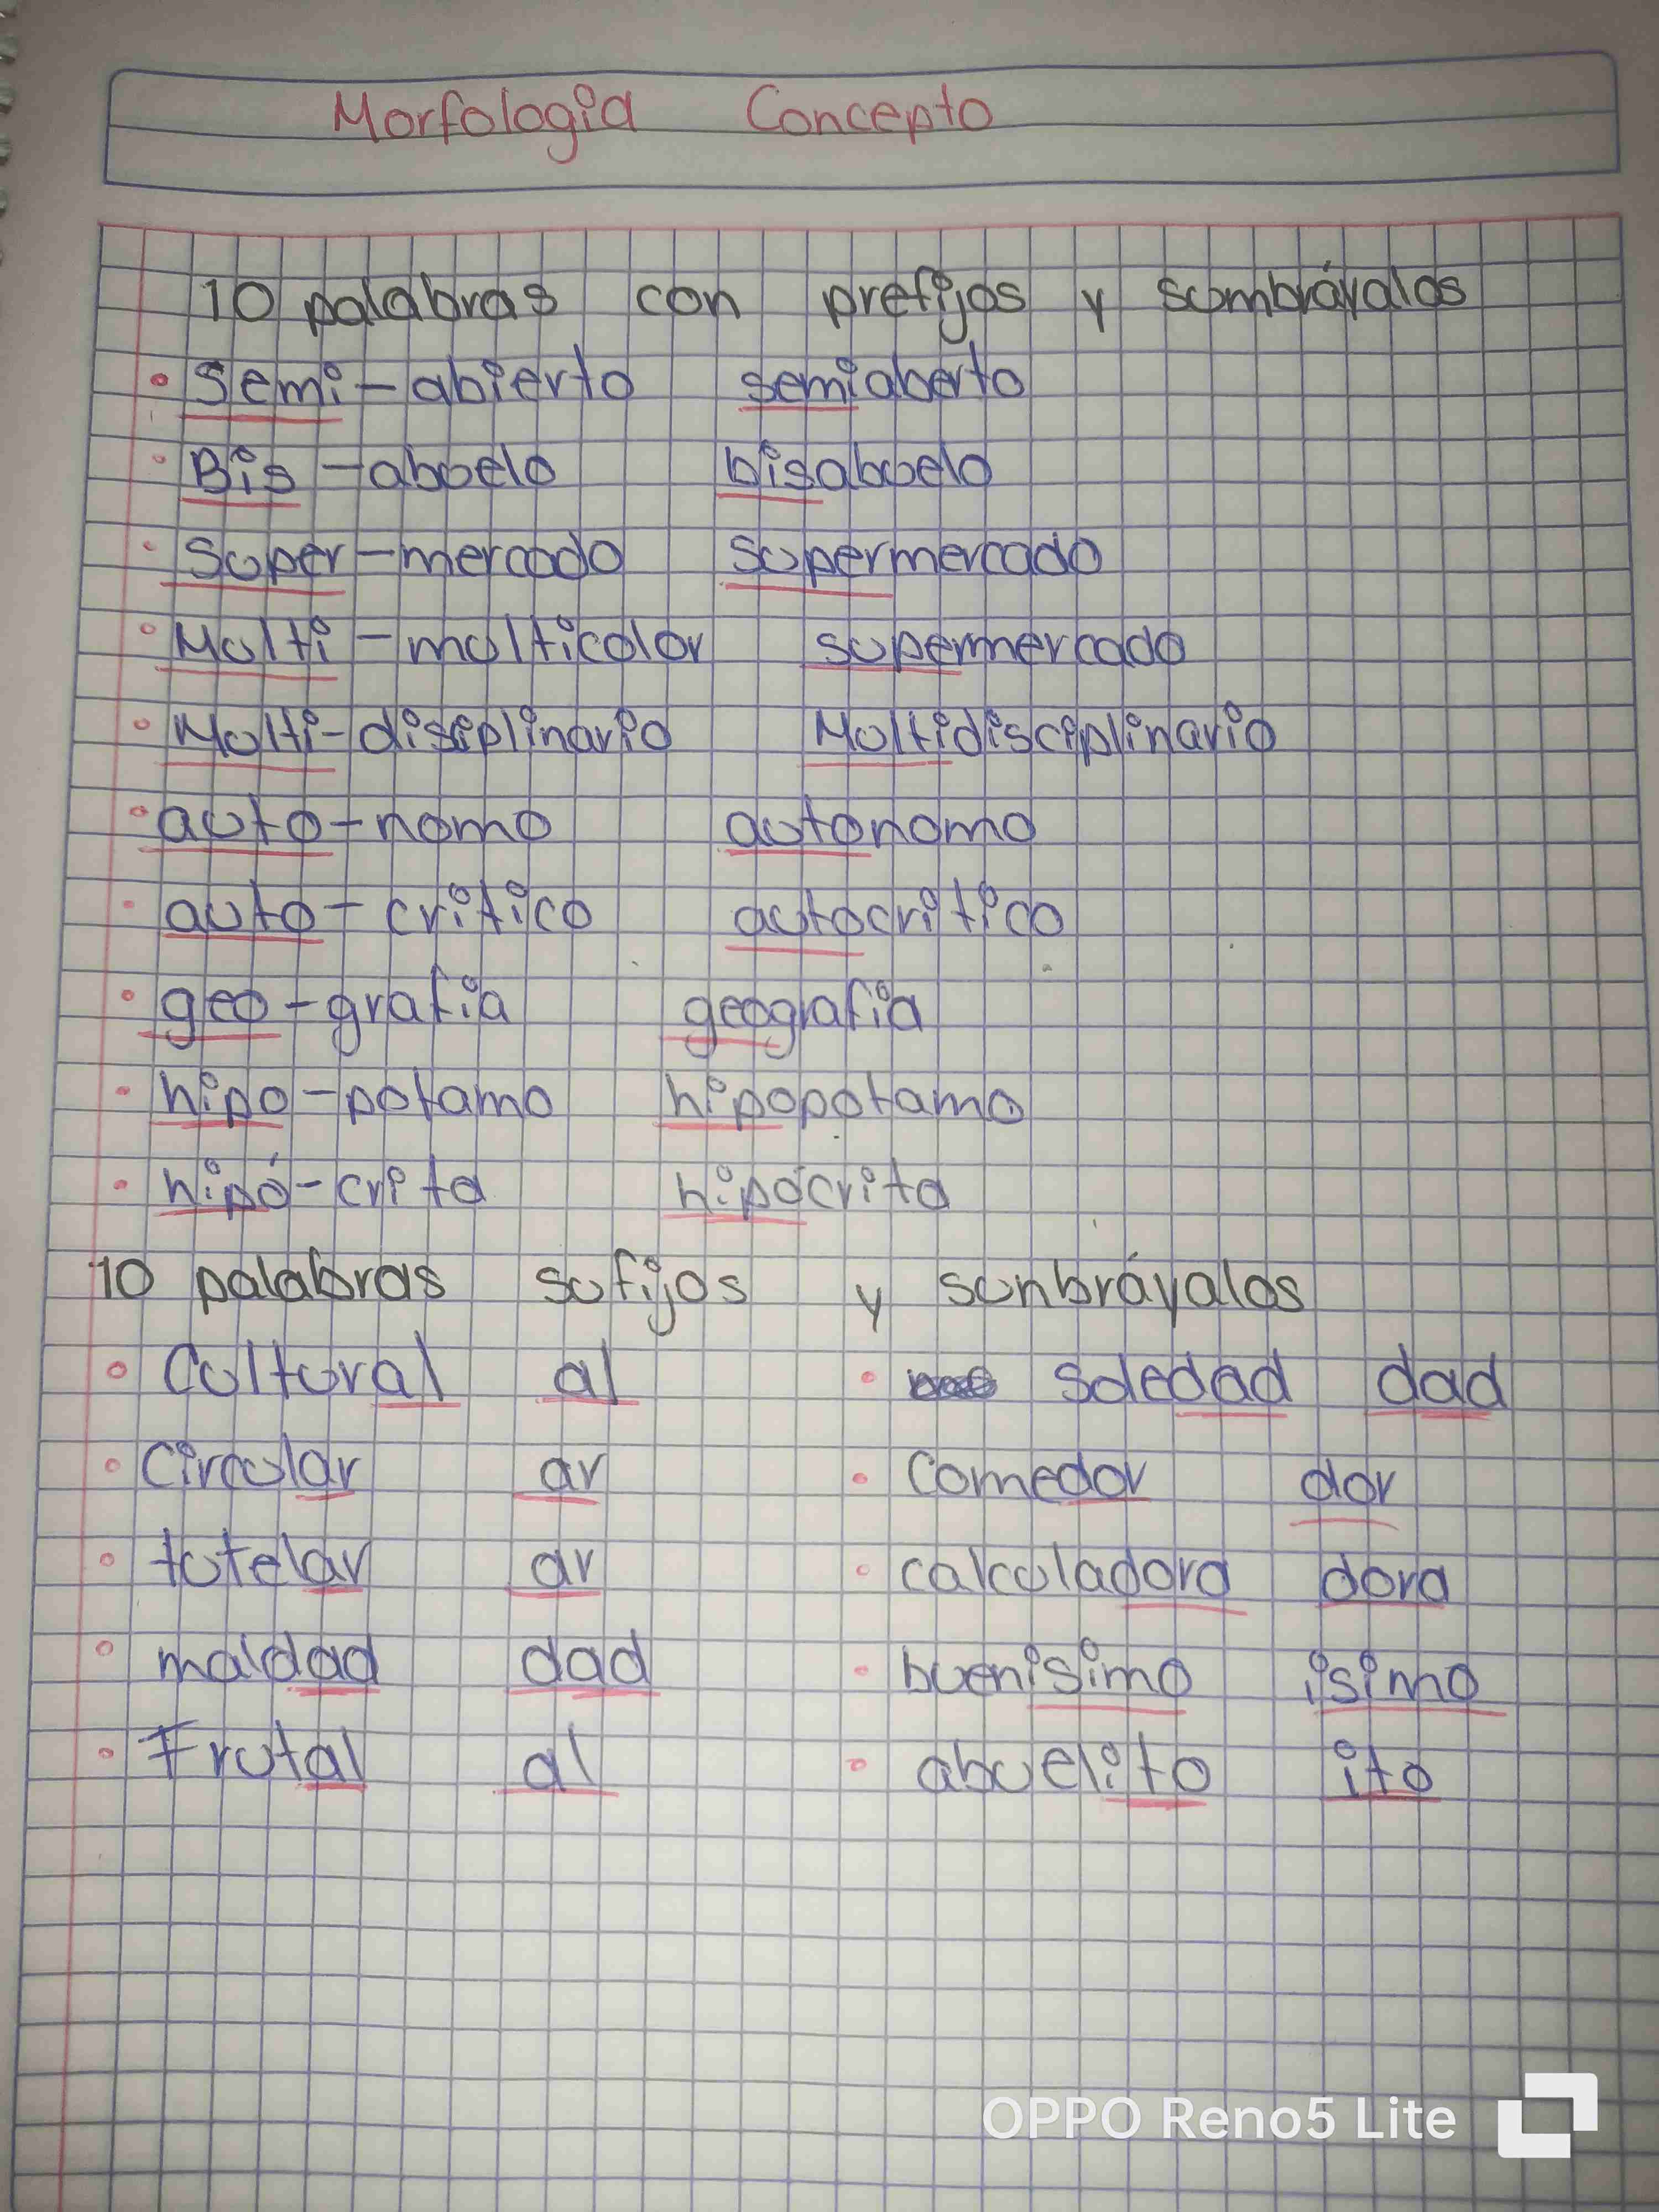 Morfologia Concepto
10 palabras con prefijos y sumbráyalos
• Semi-abierto semiaberto
• Bis-abuelo bisabuelo
• Super-mercado supermercado
• Multi-multicolor supermercado
• Multi-disciplinario Multidisciplinario
• auto-nomo autonomo
• auto-critico autocritico
• geo-grafia geografia
• hipo-potamo hipopotamo
• hipó-crita hipócrita
10 palabras sufijos y sunbráyalos
• Cultural al • soledad dad
• Circular ar • Comedor dor
• tutelar ar • calculadora dora
• maldad dad • buenisimo isimo
• Frutal al • abuelito ito
OPPO Reno5 Lite